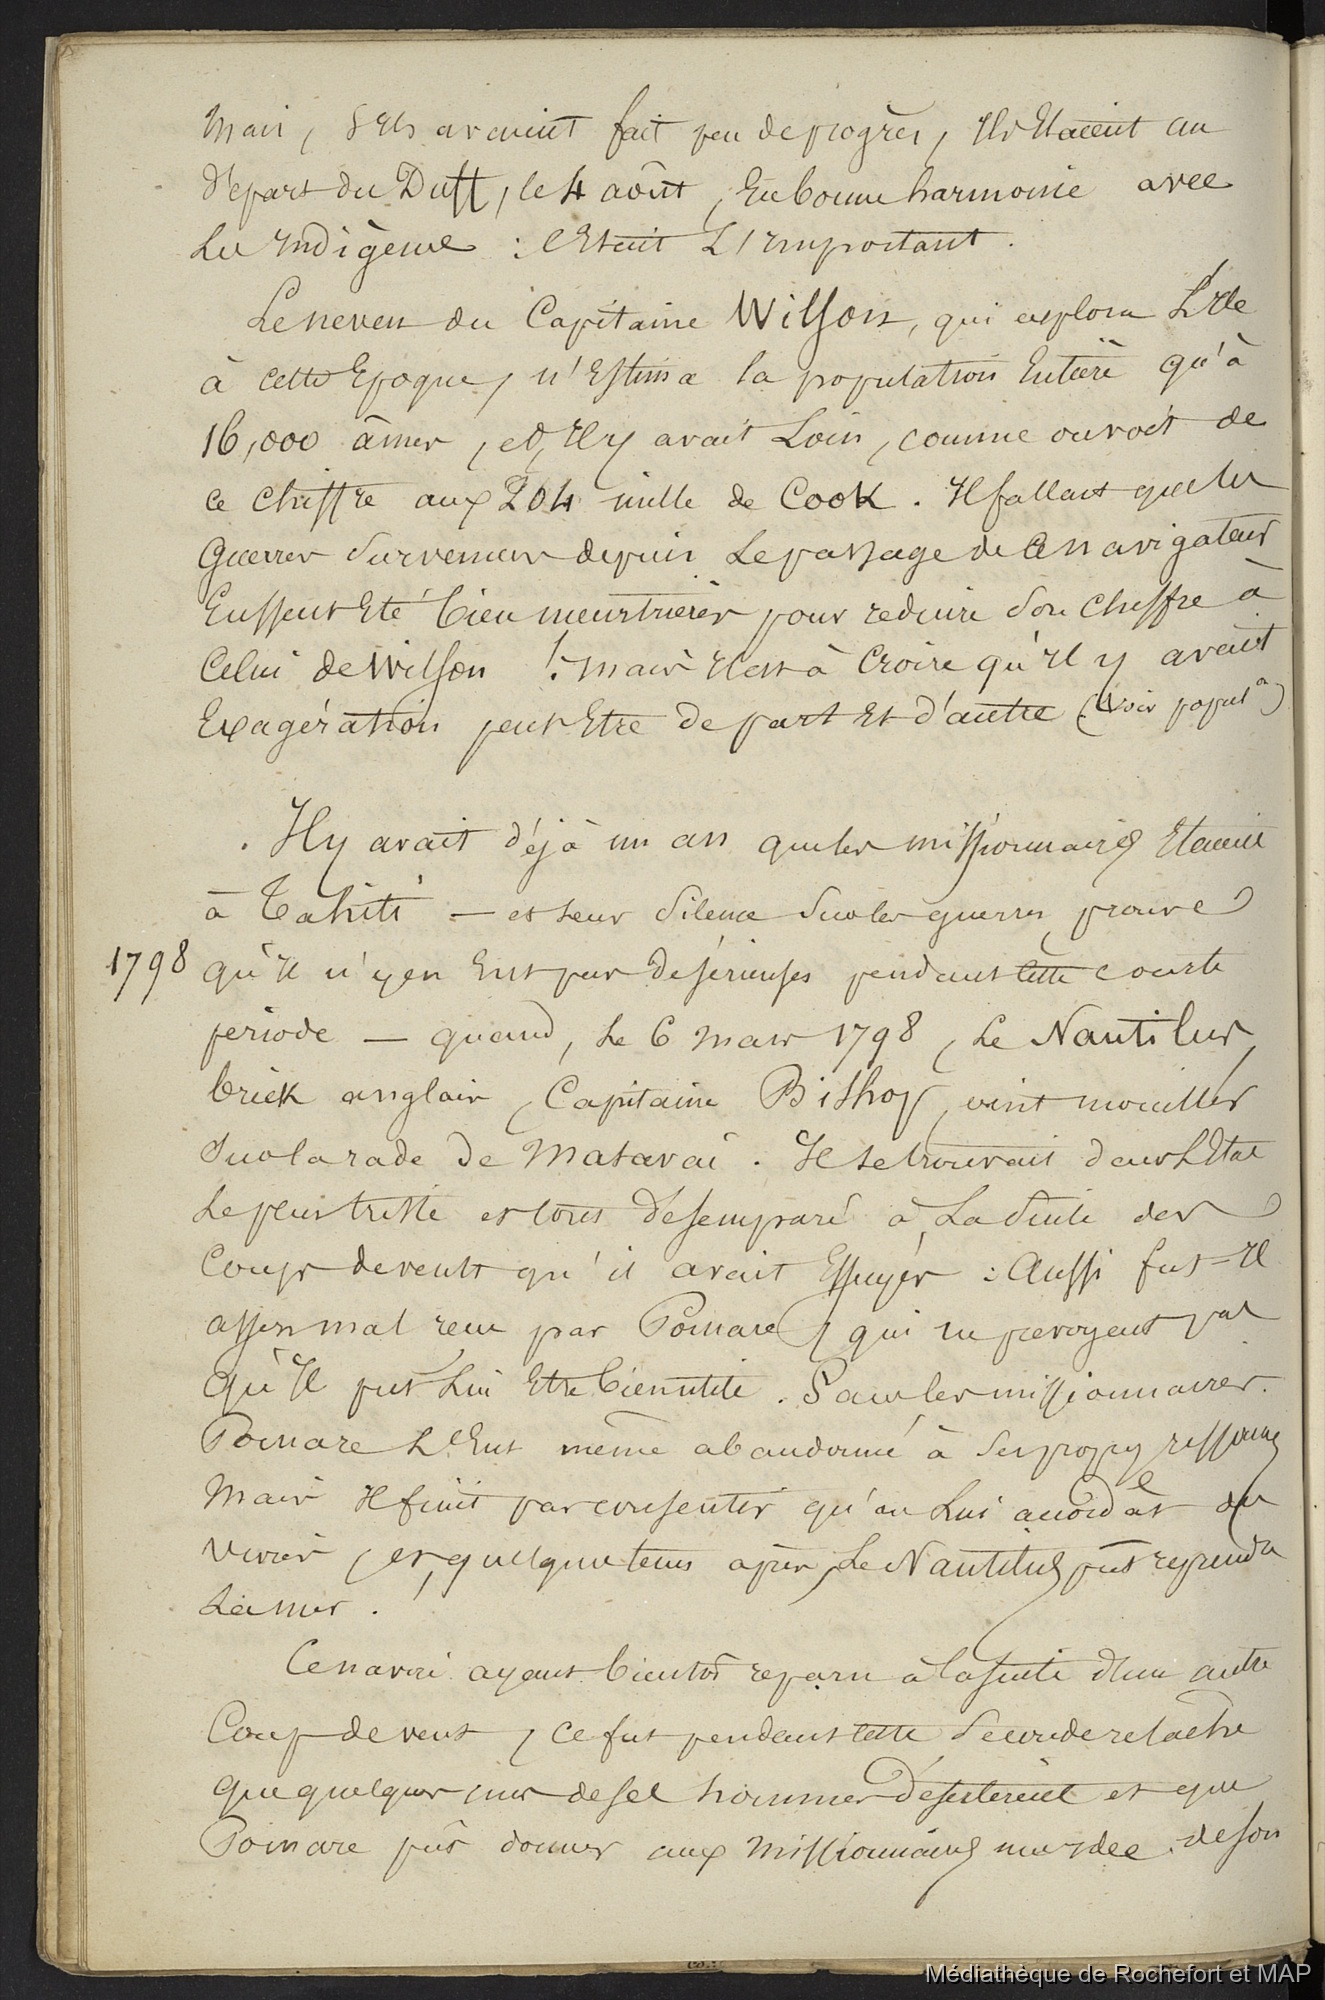 Mais, s'Ils avaient fait peu de progrès, Ils Etaient au
départ du Duff, le 4 août, En bonne harmonie avec
Les Indigènes : c'Etait L'Important.
Le neveu du Capitaine Wilson, qui explora L'Ile
à cette Epoque, n'Estima la population Entière qu'à
16,000 âmes, et, Il y avait Loin, comme on voit de
ce chiffre aux 204 mille de Cook. Il fallait que les
Guerres survenues depuis Le passage de Ce navigateur
Eussent Eté bien meurtrières pour reduire son chiffre à
Celui de Wilson ! Mais Il est à croire qu'Il y avait
Exagération peut Etre de part Et d'autre (Voir popul.on)
. Il y avait déjà un an que les missionnaires Etaient
à Tahiti — et leur silence sur les guerres, prouve
1798
qu'Il n'y en Eut pas de sérieuses pendant cette courte
periode — quand, le 6 mars 1798, Le Nautilus,
brick anglais, Capitaine Bishop, vint mouiller
sur la rade de Matavaï. Il se trouvait dans L'Etat
Le plus triste et tout désemparé à La suite des
Coups de vents qu'il avait Essuyés : Aussi fut-Il
assez mal recu par Pomare, qui ne prevoyait pas
qu'Il put Lui Etre bien utile. Sans les missionnaires.
Pomare L'Eut même abandonné à ses propres ressources
Mais Il finit par consentir qu'on Lui accordât des
vivres, et, quelque tems après, Le Nautilus put reprendre
La mer.
Ce navire ayant bientôt reparu à la suite d'un autre
Coup de vent, ce fut pendant cette seconde relache
que quelques uns de ses hommes désertèrent et que
Pomare put donner aux Missionnaires une Idée de son
Médiathèque de Rochefort et MAP